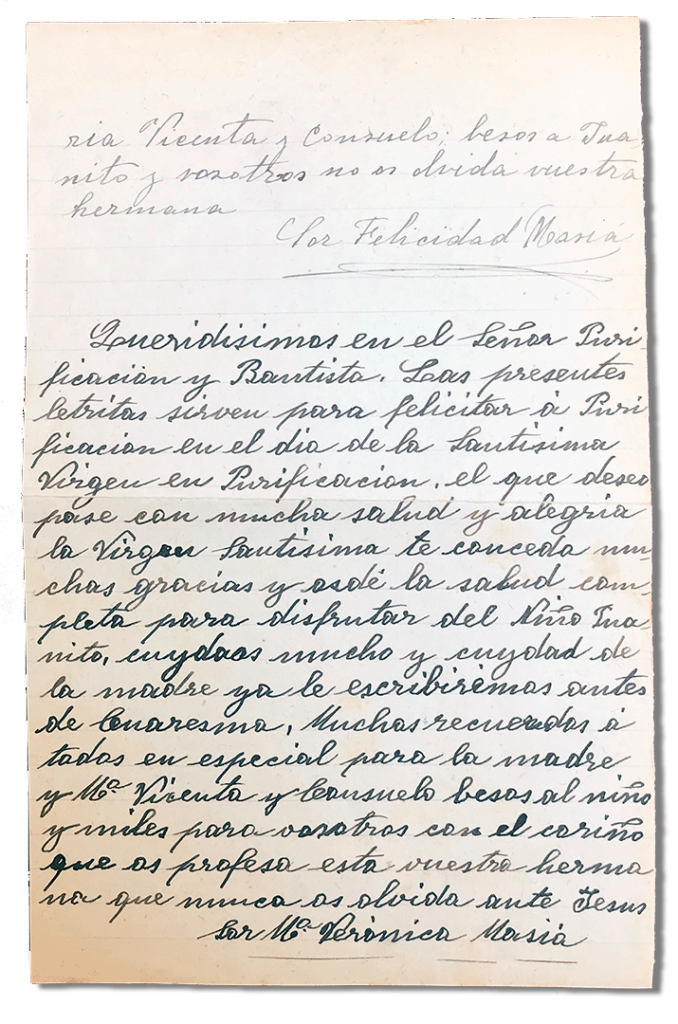 ria Vicenta y Consuelo; besos a Jua
nito y vosotros no os olvida vuestra
hermana
Sor Felicidad Masiá
Queridisimos en el Señor Puri
ficación y Bautista. Las presentes
letritas sirven para felicitar á Puri
ficacion en el dia de la Santisima
Virgen en Purificacion, el que deseo
pase con mucha salud y alegria
la Virgen Santisima te conceda mu-
chas gracias y osdé la salud com-
pleta para disfrutar del Niño Jua-
nito, cuydaos mucho y cuydad de
la madre ya le escribirémos antes
de Cuaresma, Muchos recuerdos á
todos en especial para la madre
y Mª Vicenta y Consuelo besos al niño
y miles para vosotros con el cariño
que os profesa esta vuestra herma
na que nunca os olvida ante Jesus
Sor Mª Verónica Masiá